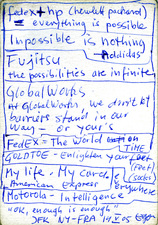 fedex + hp (hewlett packard)
= everything is possible
Inpossible is nothing
Addidas
Fujitsu
the possibilities are infinite
Global Works
At GlobalWorks, we don't let
burriers stand in our
way — or your's
FedEx - The World
on TIME
GOLDTOE - Enlighten your feet
(feet)
(socks)
My life. My Card.
American Express
everywhere
Motorola - Intelligence
"OK, enough is enough"
JFK NY-FRA 14 V 05